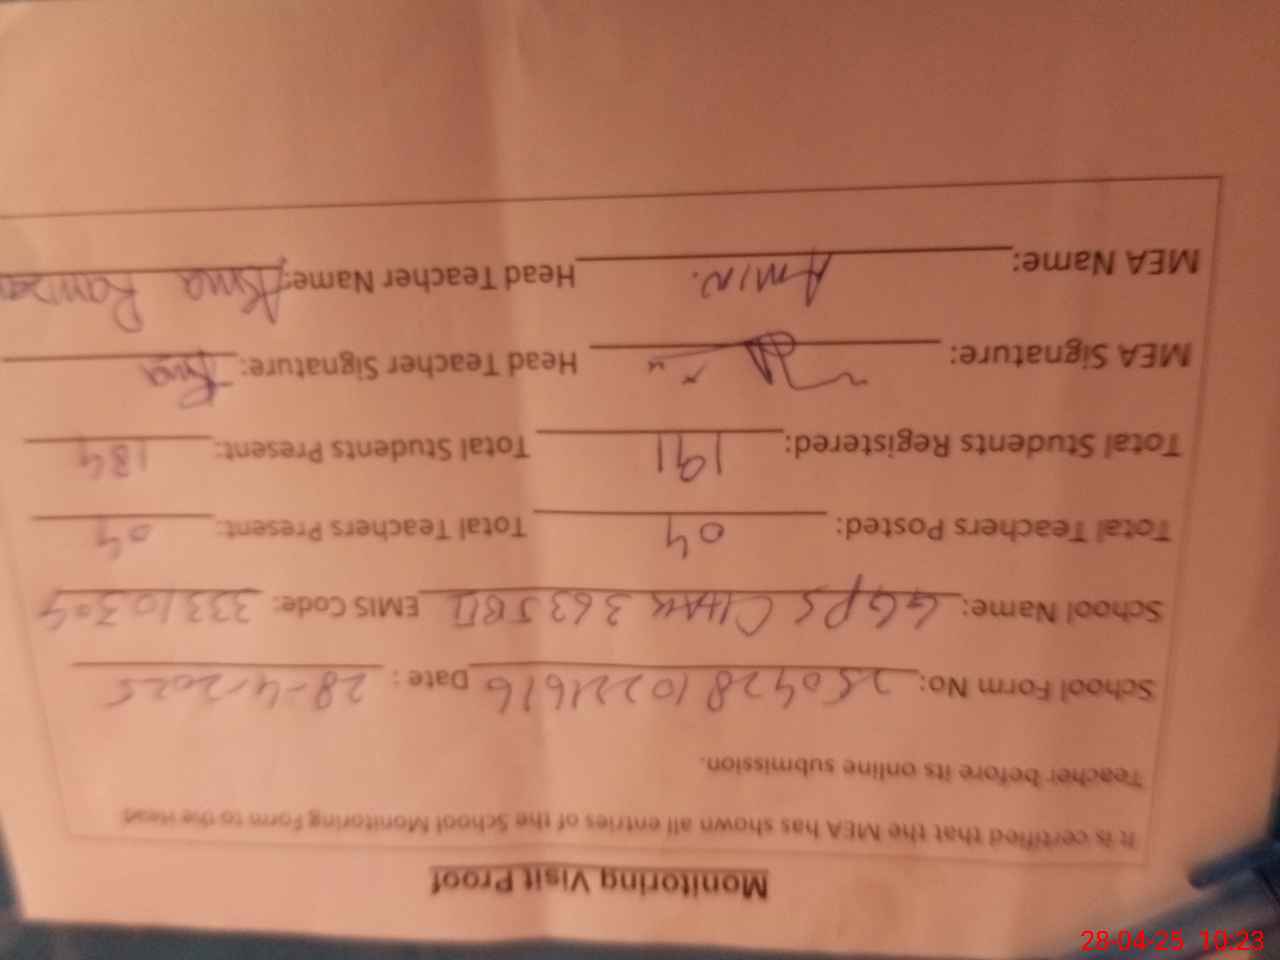 Monitoring Visit Proof
It is certified that the MEA has shown all entries of the School Monitoring Form to the Head
Teacher before its online submission.
School Form No: 250428102216 Date: 28-4-2025
School Name: GGPS CHAK 363 JB II EMIS Code: 33310304
Total Teachers Posted: 04 Total Teachers Present: 04
Total Students Registered: 191 Total Students Present: 184
MEA Signature: Head Teacher Signature: Asma
MEA Name: AMIN. Head Teacher Name: Asma Ramzan
28-04-25 10:23